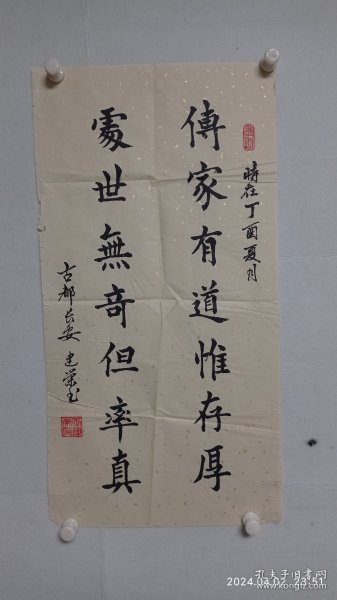 時在丁酉夏月
傳家有道惟存厚
處世無奇但率真
古都長安 建榮書
2024.04.02 23:51
孔夫子旧书网